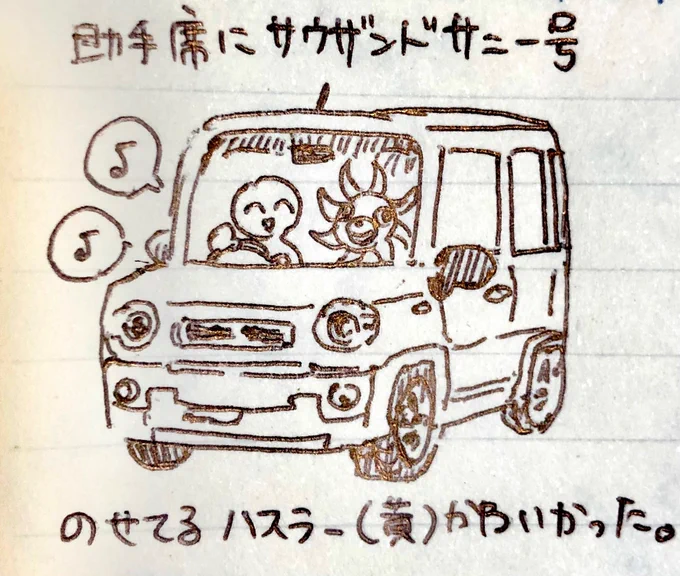 助手席にサウザンドサニー号
♪
♪
のせてるハスラー(黄)かわいかった。